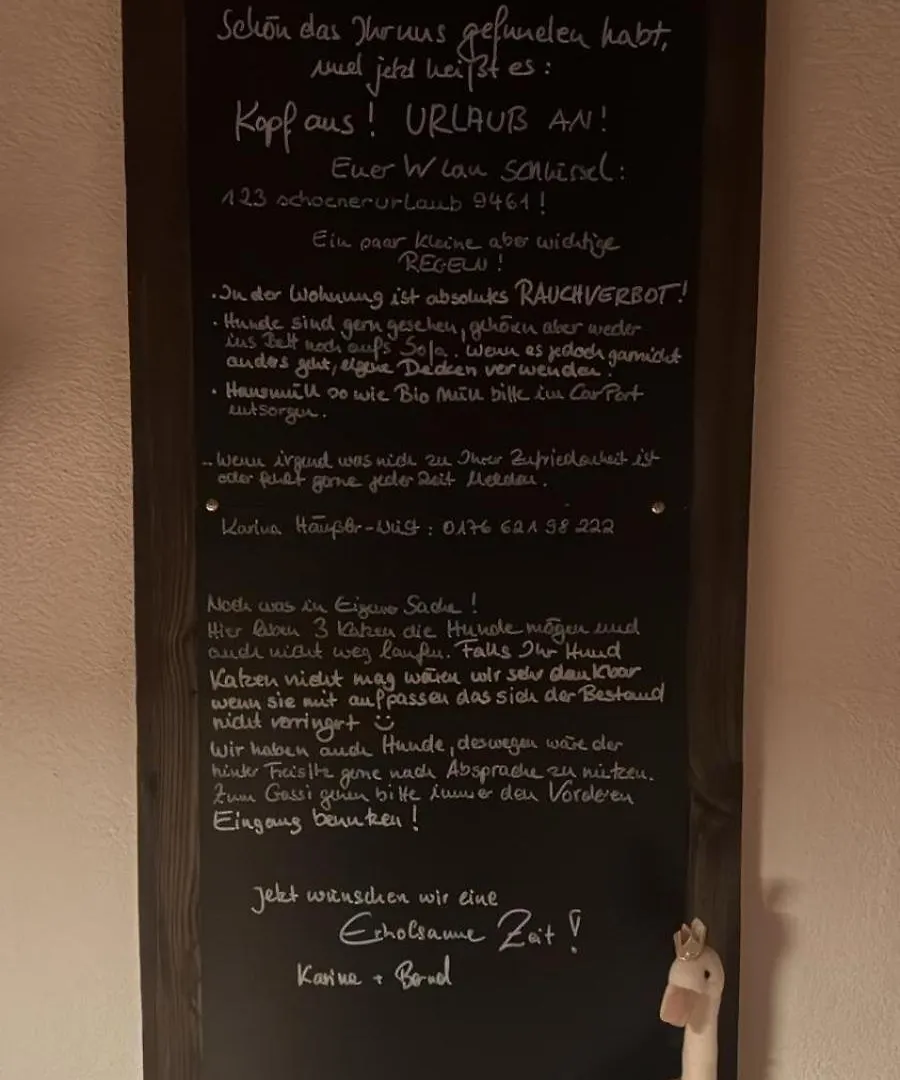 Schön das Ihr uns gefunden habt,
und jetzt heißt es:
Kopf aus! URLAUB AN!
Euer W Lan Schlüssel:
123 schoenerurlaub 9461!
Ein paar kleine aber wichtige
REGELN!
· In der Wohnung ist absolutes RAUCHVERBOT!
· Hunde sind gern gesehen, gehören aber weder
ins Bett noch aufs Sofa. Wenn es jedoch garnicht
anders geht, eigene Decken verwenden.
· Hausmüll so wie Bio Müll bitte im CarPort
entsorgen.
- Wenn irgend was nich zu Ihrer Zufriedenheit ist
oder fehlt gerne jeder Zeit Melden.
Karina Häußler-Wüst: 0176 621 98 222
Noch was in Eigener Sache!
Hier leben 3 Katzen die Hunde mögen und
auch nicht weg laufen. Falls Ihr Hund
Katzen nicht mag wären wir sehr dankbar
wenn sie mit aufpassen das sich der Bestand
nicht verringert ☺
Wir haben auch Hunde, deswegen wäre der
hinter gerne nach Absprache zu nützen.
Zum Gassi gehen bitte immer den Vorderen
Eingang benutzen!
Jetzt wünschen wir eine
Erholsame Zeit!
Karina + Bernd